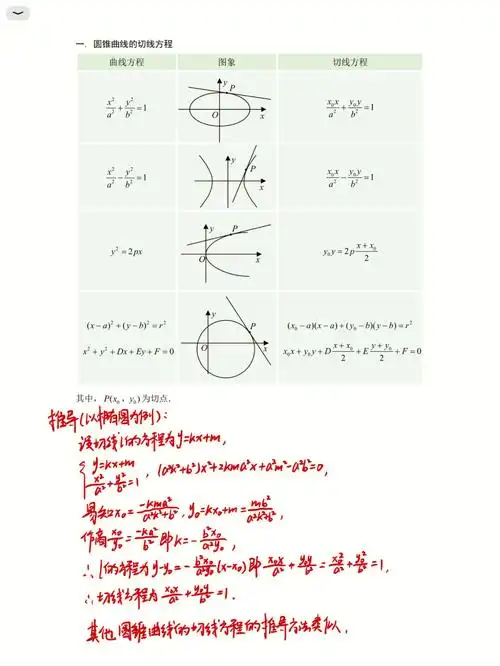 一．圆锥曲线的切线方程
曲线方程 图象 切线方程
x²/a² + y²/b² = 1 y P O x x₀x/a² + y₀y/b² = 1
x²/a² - y²/b² = 1 y P x x₀x/a² - y₀y/b² = 1
y² = 2px y P O x y₀y = 2p (x + x₀)/2
(x - a)² + (y - b)² = r² y P O x (x₀ - a)(x - a) + (y₀ - b)(y - b) = r²
x² + y² + Dx + Ey + F = 0 x₀x + y₀y + D (x + x₀)/2 + E (y + y₀)/2 + F = 0
其中，P(x₀，y₀)为切点．
推导(以椭圆为例)：
设切线l的方程为y=kx+m，
{ y=kx+m
x²/a² + y²/b² = 1 ，(a²k²+b²)x²+2kma²x+a²m²-a²b²=0，
易知x₀= -kma²/(a²k²+b²)，y₀=kx₀+m= mb²/(a²k²+b²)，
作商 x₀/y₀ = -ka²/b² 即k= - b²x₀/(a²y₀)，
∴l的方程为y-y₀= - b²x₀/(a²y₀) (x-x₀)即 x₀x/a² + y₀y/b² = x₀²/a² + y₀²/b² = 1，
∴切线方程为 x₀x/a² + y₀y/b² = 1．
其他圆锥曲线的切线方程的推导方法类似．